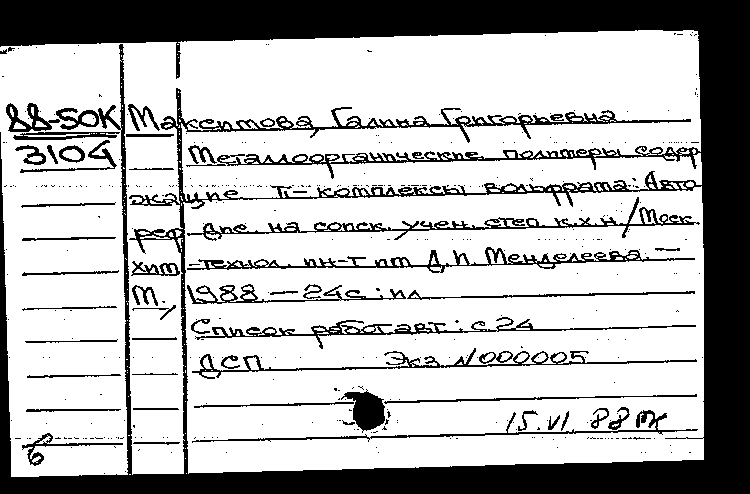 88-50К Максимова, Галина Григорьевна
3104 Металлоорганические полимеры содер-
жащие π-комплексы вольфрама: Авто-
реф. дис. на соиск. учен. степ. к.х.н. / Моск.
хим.-технол. ин-т им. Д.И. Менделеева. —
М., 1988. — 24с.: ил.
Список работ авт.: с 24
ДСП. Экз. N000005
15.VI.88
б